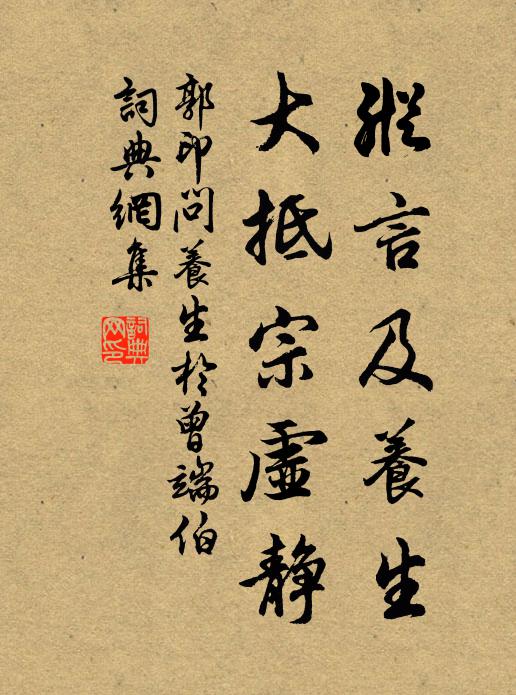 縱言及養生
大抵宗虛静
郭印問養生於曾端伯
詞典網集
詞典
网印